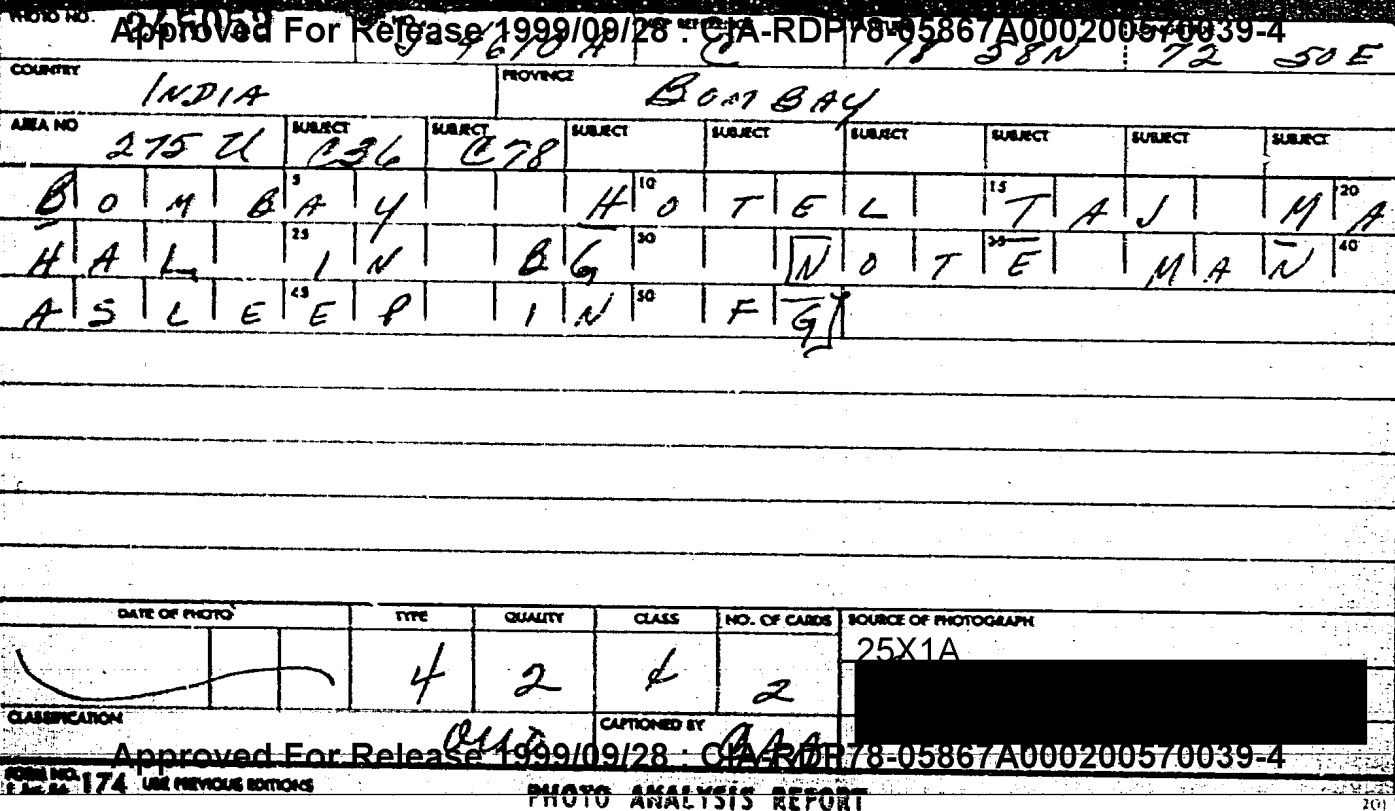 PHOTO NO.
Approved For Release 1999/09/28 : CIA-RDP78-05867A000200570039-4
C 18 58N 72 50 E
COUNTRY PROVINCE
INDIA BOMBAY
AREA NO SUBJECT SUBJECT SUBJECT SUBJECT SUBJECT SUBJECT SUBJECT SUBJECT
275 U C36 C78
5 10 15 20
BOMBAY HOTEL TAJ MA
25 30 35 40
HAL IN BG [NOTE MAN
45 50
ASLEEP IN FG]
DATE OF PHOTO TYPE QUALITY CLASS NO. OF CARDS SOURCE OF PHOTOGRAPH
25X1A
4 2 2
CLASSIFICATION CAPTIONED BY
Approved For Release 1999/09/28 : CIA-RDP78-05867A000200570039-4
FORM NO. 174 USE PREVIOUS EDITIONS
PHOTO ANALYSIS REPORT